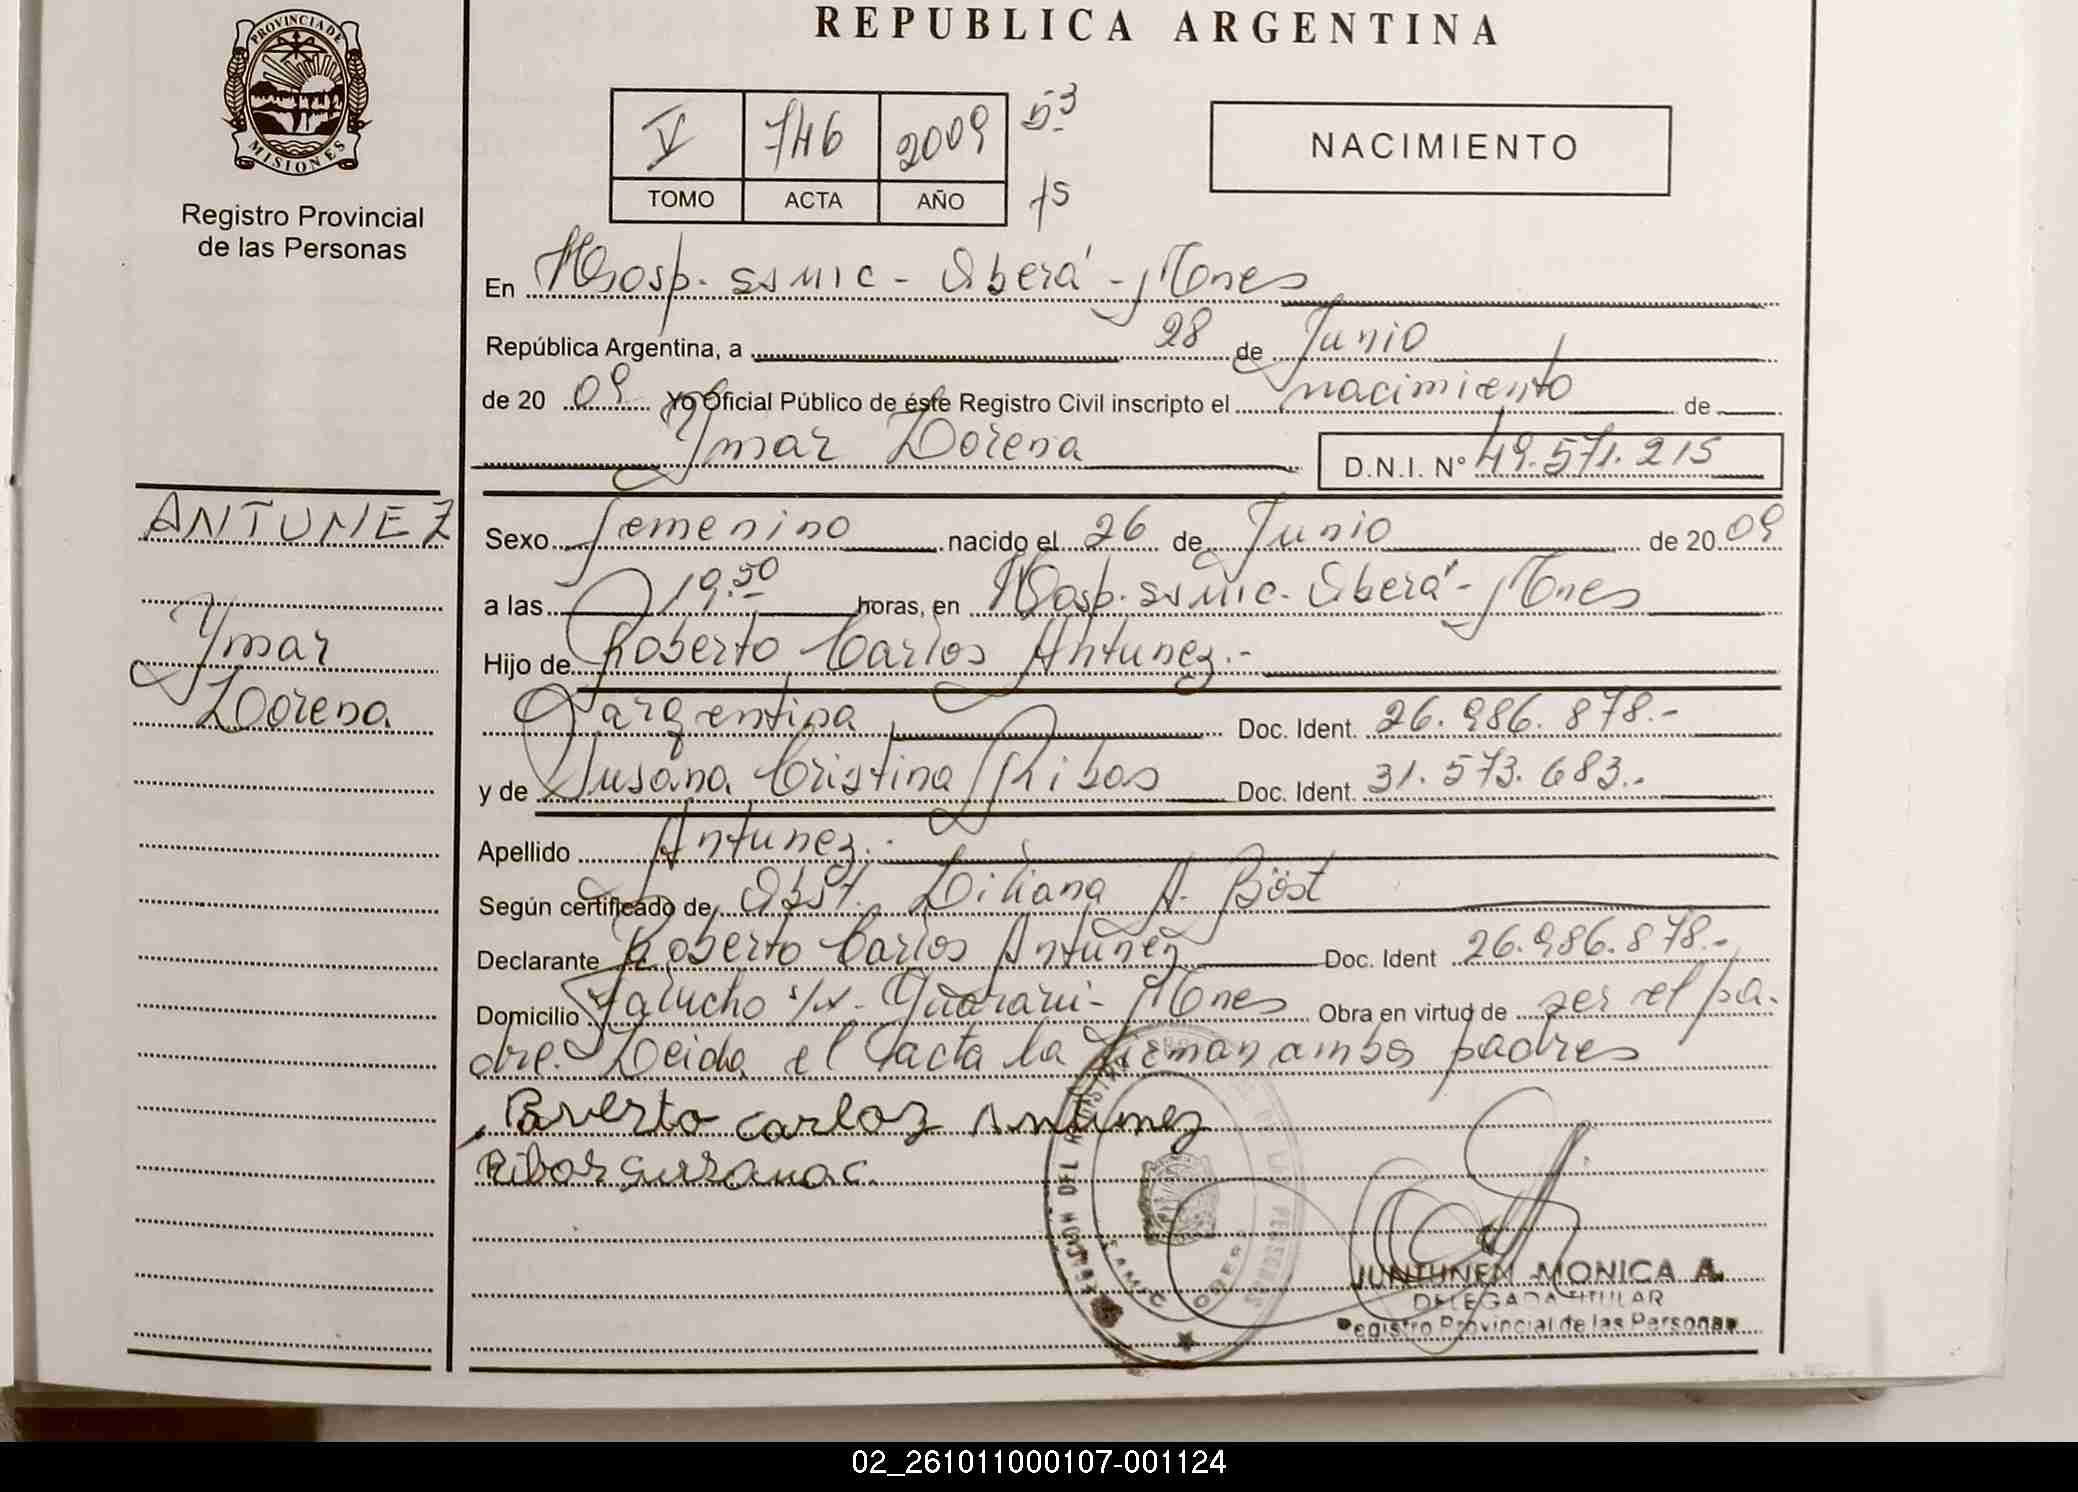 REPUBLICA ARGENTINA
PROVINCIA DE MISIONES
Registro Provincial
de las Personas
V 746 2009 53
TOMO ACTA AÑO 75
NACIMIENTO
En Hosp. SAMIC - Oberá - Mnes
República Argentina, a 28 de Junio
de 20 09 Yo Oficial Público de éste Registro Civil inscripto el nacimiento de
Ymar Lorena D.N.I. N° 49.571.215
ANTUNEZ
Ymar
Lorena
Sexo femenino nacido el 26 de Junio de 20 09
a las 19.50 horas, en Hosp. SAMIC - Oberá - Mnes
Hijo de Roberto Carlos Antunez.-
argentina Doc. Ident. 26.986.878.-
y de Susana Cristina Ribas Doc. Ident. 31.573.683.-
Apellido Antunez.-
Según certificado de Obst. Liliana A. Böst
Declarante Roberto Carlos Antunez Doc. Ident 26.986.878.-
Domicilio s/n - Guaraní - Mnes Obra en virtud de ser el pa-
dre. Leida el acta la firman ambos padres
Roverto carloz Antunez
Ribas Susana c.
SAMIC OBERA
JUNTUNEN MONICA A.
DELEGADA TITULAR
Registro Provincial de las Personas
02_261011000107-001124